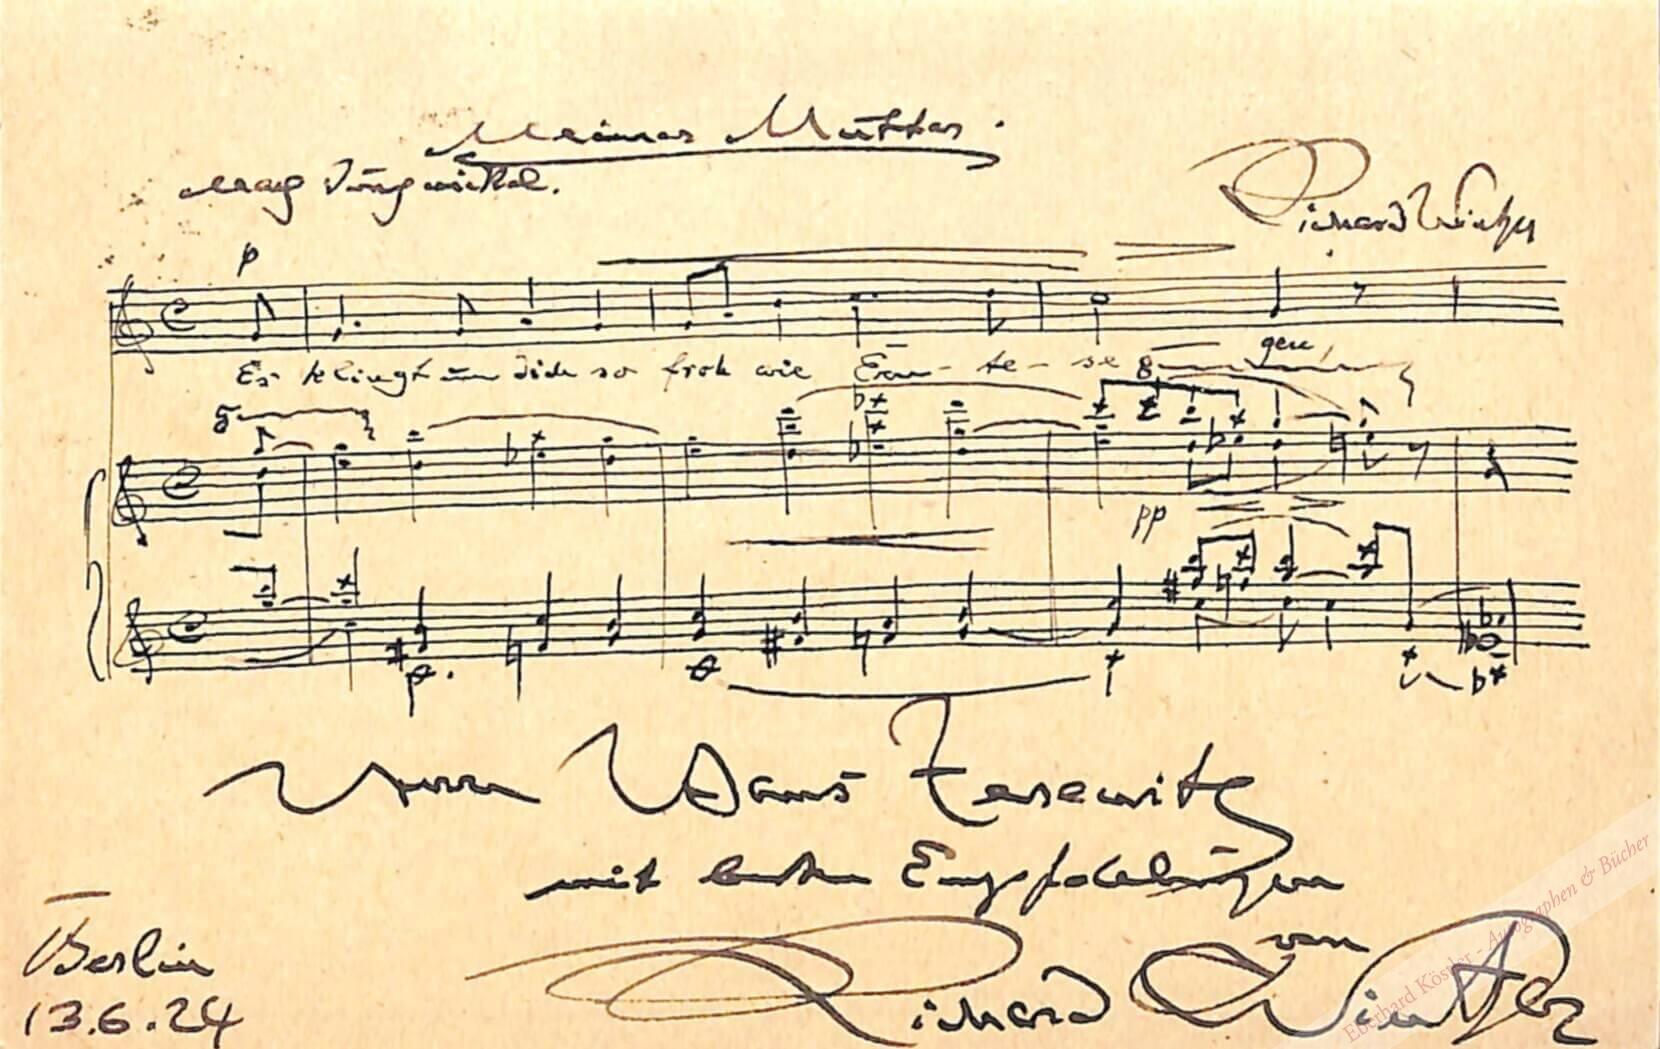 Meiner Mutter.
Max Jungnickel.
Richard Wintzer
p
Es klingt um dich so froh wie Ern - te - se - gen,
8
8
pp
Herrn Hans
mit besten Empfehlungen
Richard Wintzer
Berlin
13.6.24
Eberhard Köstler - Autographen & Bücher